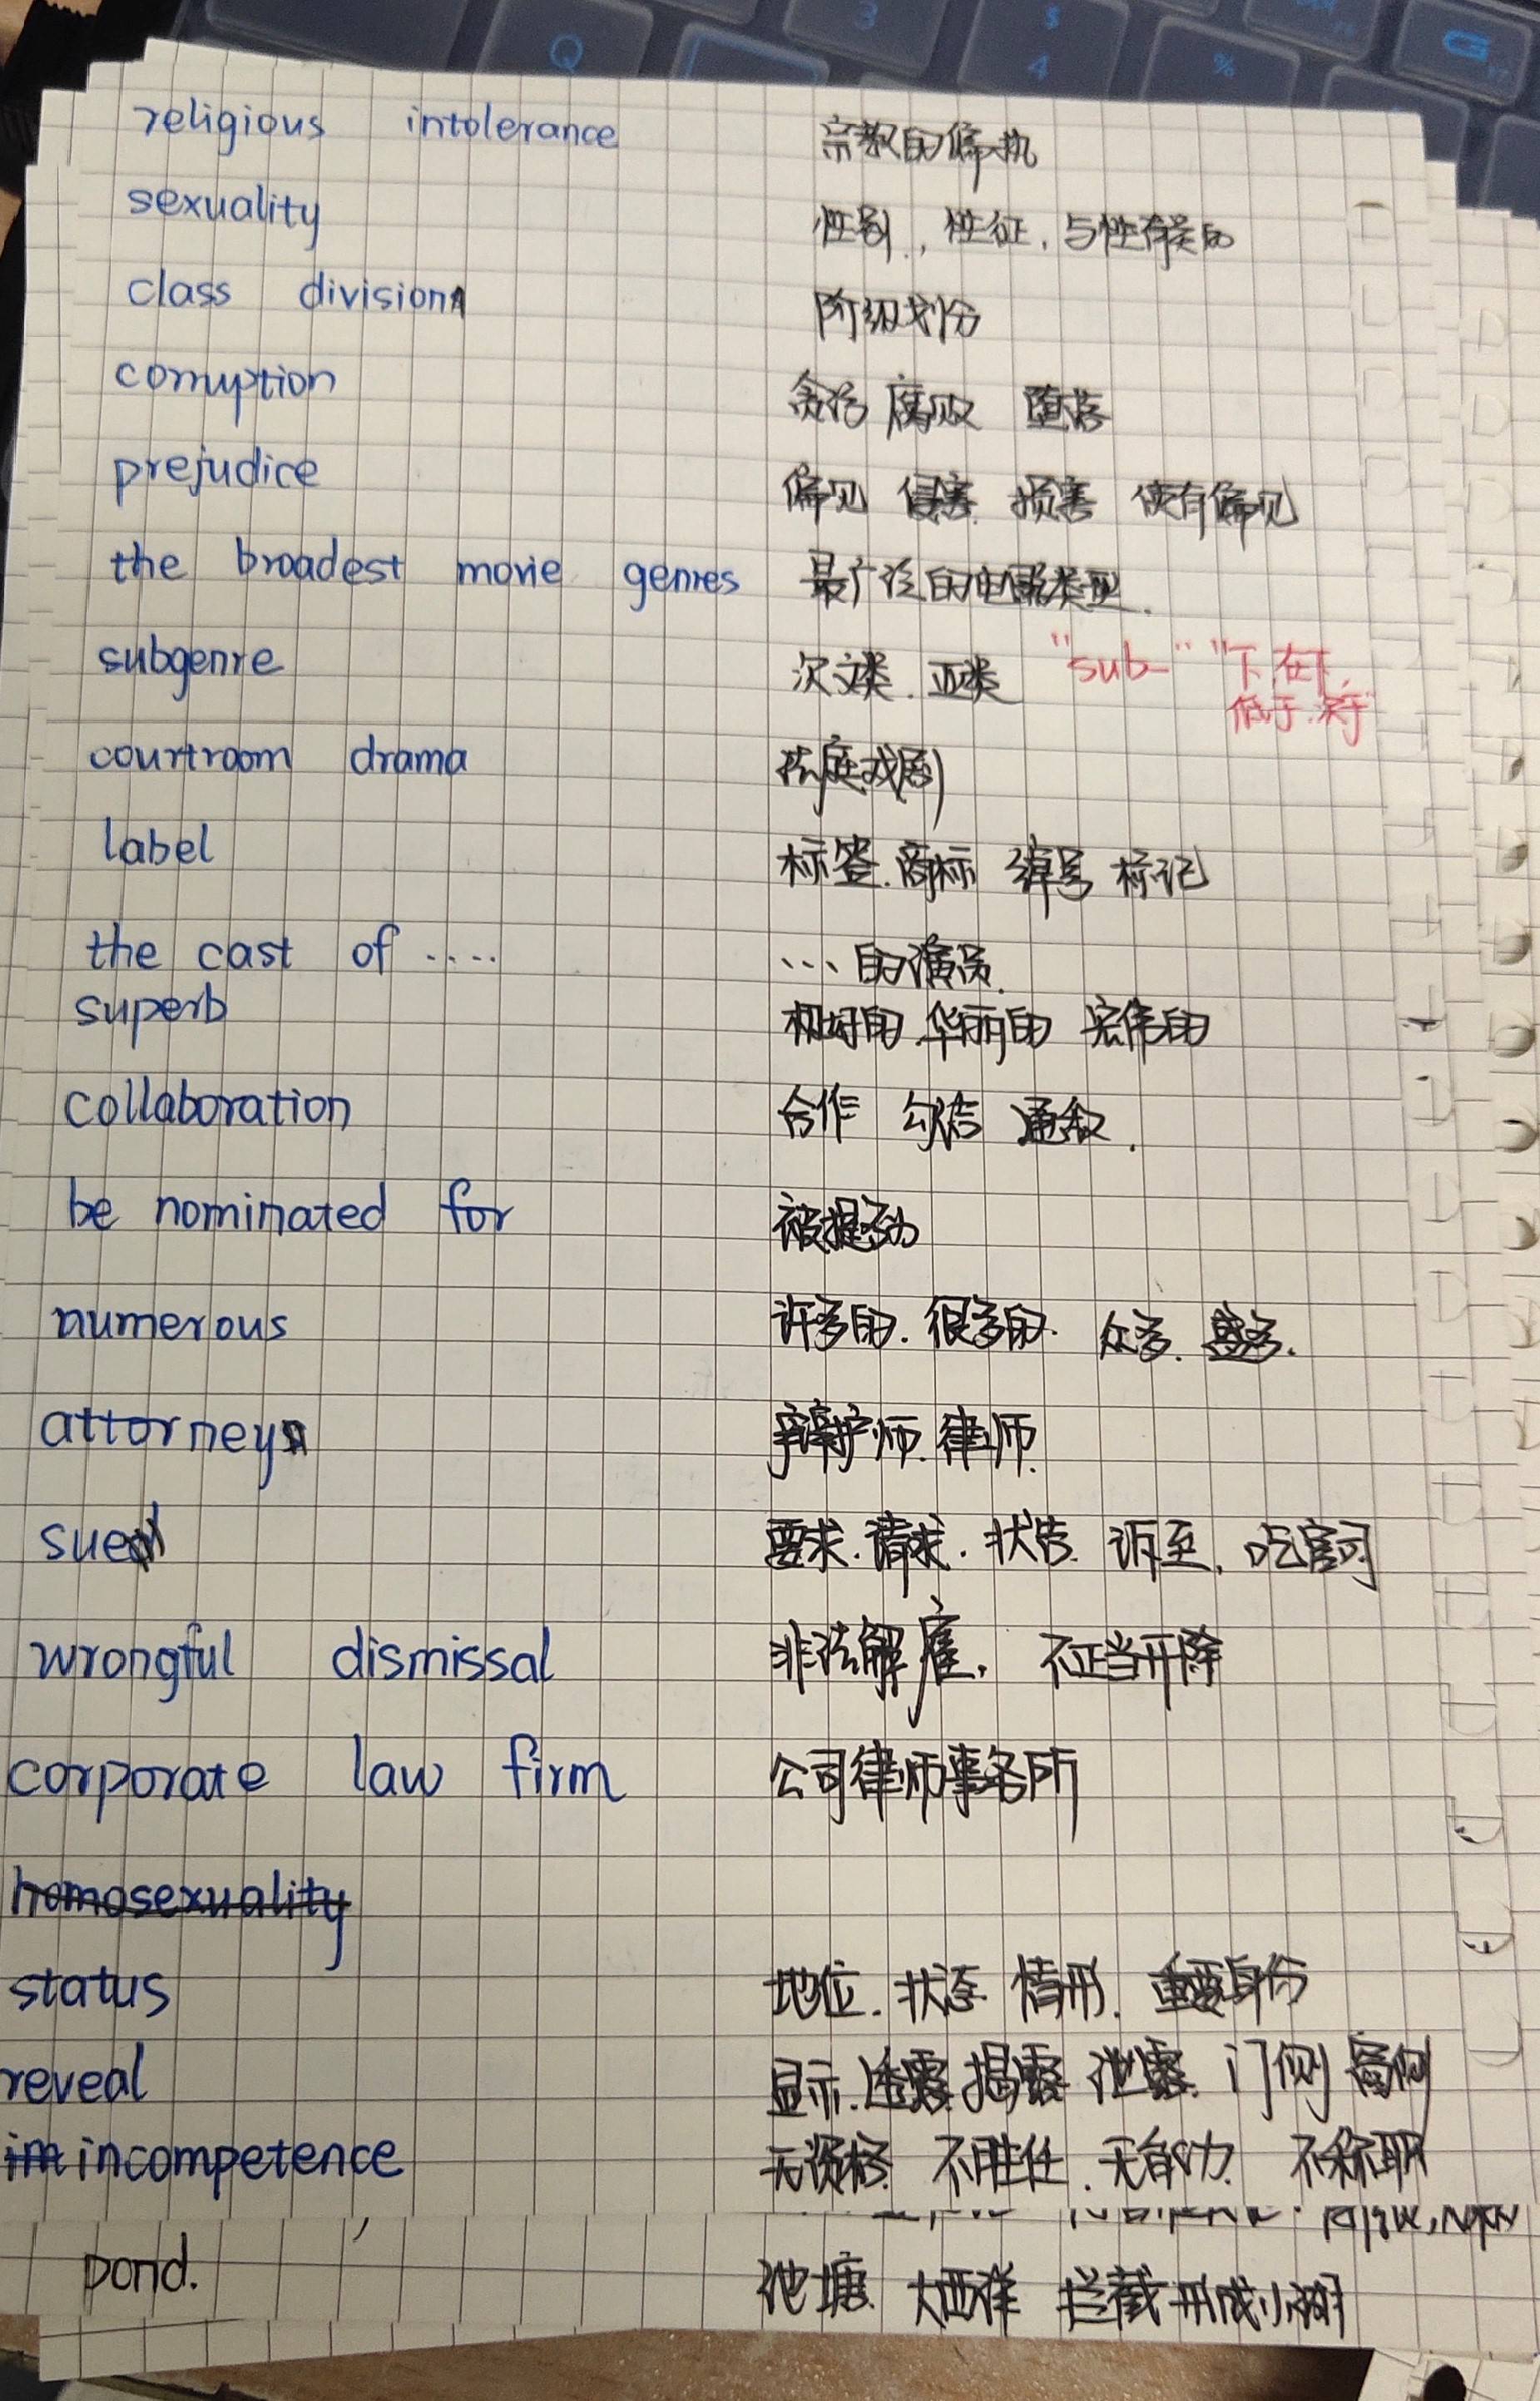 religious intolerance 宗教的偏执
sexuality 性别, 性征, 与性有关的
class division 阶级划分
corruption 贪污 腐败 堕落
prejudice 偏见 侵害 损害 使有偏见
the broadest movie genres 最广泛的电影类型.
subgenre 次文类. 亚类 "sub-" "下,在下,
低于.次于"
courtroom drama 法庭戏剧
label 标签.商标 绰号 标记
the cast of .... ...的演员.
superb 极好的.华丽的 宏伟的
collaboration 合作 勾结 通敌.
be nominated for 被提名为
numerous 许多的. 很多的. 众多. 盛多.
attorney 辩护师.律师.
sue 要求.请求.状告. 诉至, 吃官司
wrongful dismissal 非法解雇, 不正当开除
corporate law firm 公司律师事务所
homosexuality
status 地位. 状态 情形. 重要身份
reveal 显示.透露.揭露 泄露. 门侧 窗侧
im incompetence 无资格 不胜任. 无能力. 不称职
pond. 池塘. 大西洋 拦截 形成小湖